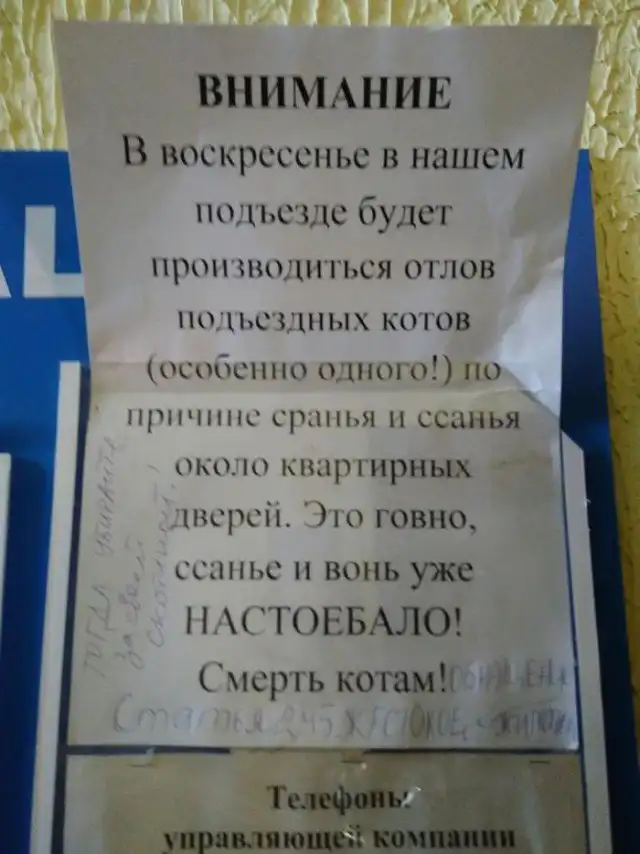 ВНИМАНИЕ
В воскресенье в нашем
подъезде будет
производиться отлов
подъездных котов
(особенно одного!) по
причине сранья и ссанья
около квартирных
дверей. Это говно,
ссанье и вонь уже
НАСТОЕБАЛО!
Смерть котам!
ТОГДА УБИРАЙТЕ
за своей
скотиной!
Статья 245 ЖЕСТОКОЕ
ОБРАЩЕНИЕ
Телефоны
управляющей компании